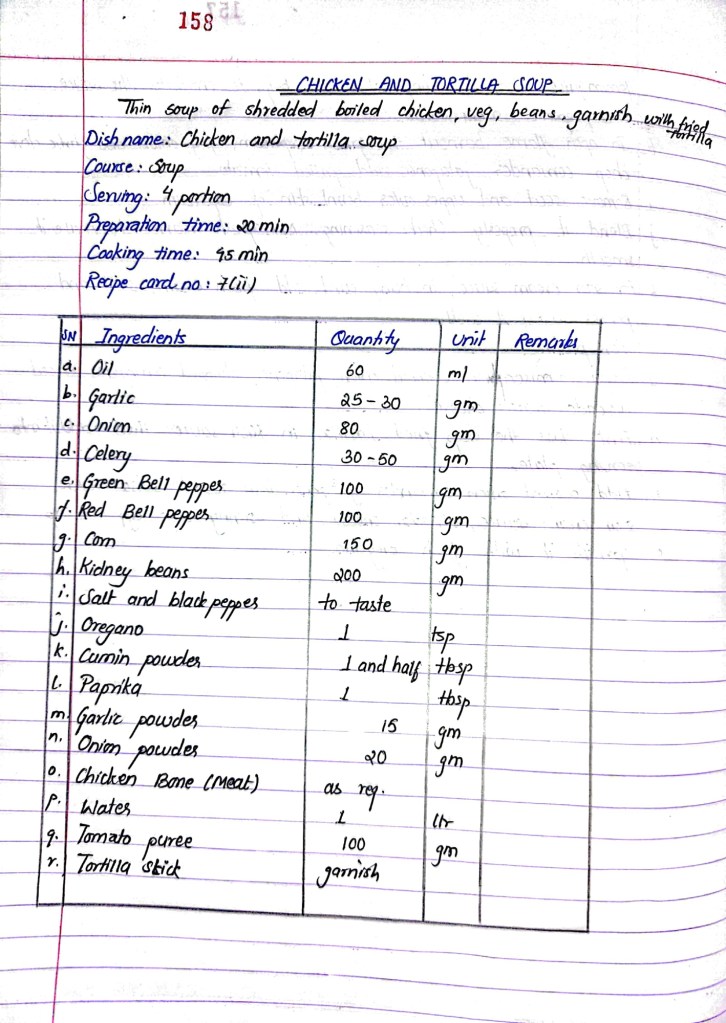 158
CHICKEN AND TORTILLA SOUP
Thin soup of shredded boiled chicken, veg, beans, garnish with fried tortilla
Dish name: Chicken and tortilla soup
Course: Soup
Serving: 4 portion
Preparation time: 20 min
Cooking time: 45 min
Recipe card no: 7(ii)
SN Ingredients Quantity Unit Remarks
a. Oil 60 ml
b. Garlic 25-30 gm
c. Onion 80 gm
d. Celery 30-50 gm
e. Green Bell pepper 100 gm
f. Red Bell pepper 100 gm
g. Corn 150 gm
h. Kidney beans 200 gm
i. Salt and black pepper to taste
j. Oregano 1 tsp
k. Cumin powder 1 and half tbsp
l. Paprika 1 tbsp
m. Garlic powder 15 gm
n. Onion powder 20 gm
o. Chicken Bone (Meat) as req.
p. Water 1 ltr
q. Tomato puree 100 gm
r. Tortilla stick garnish